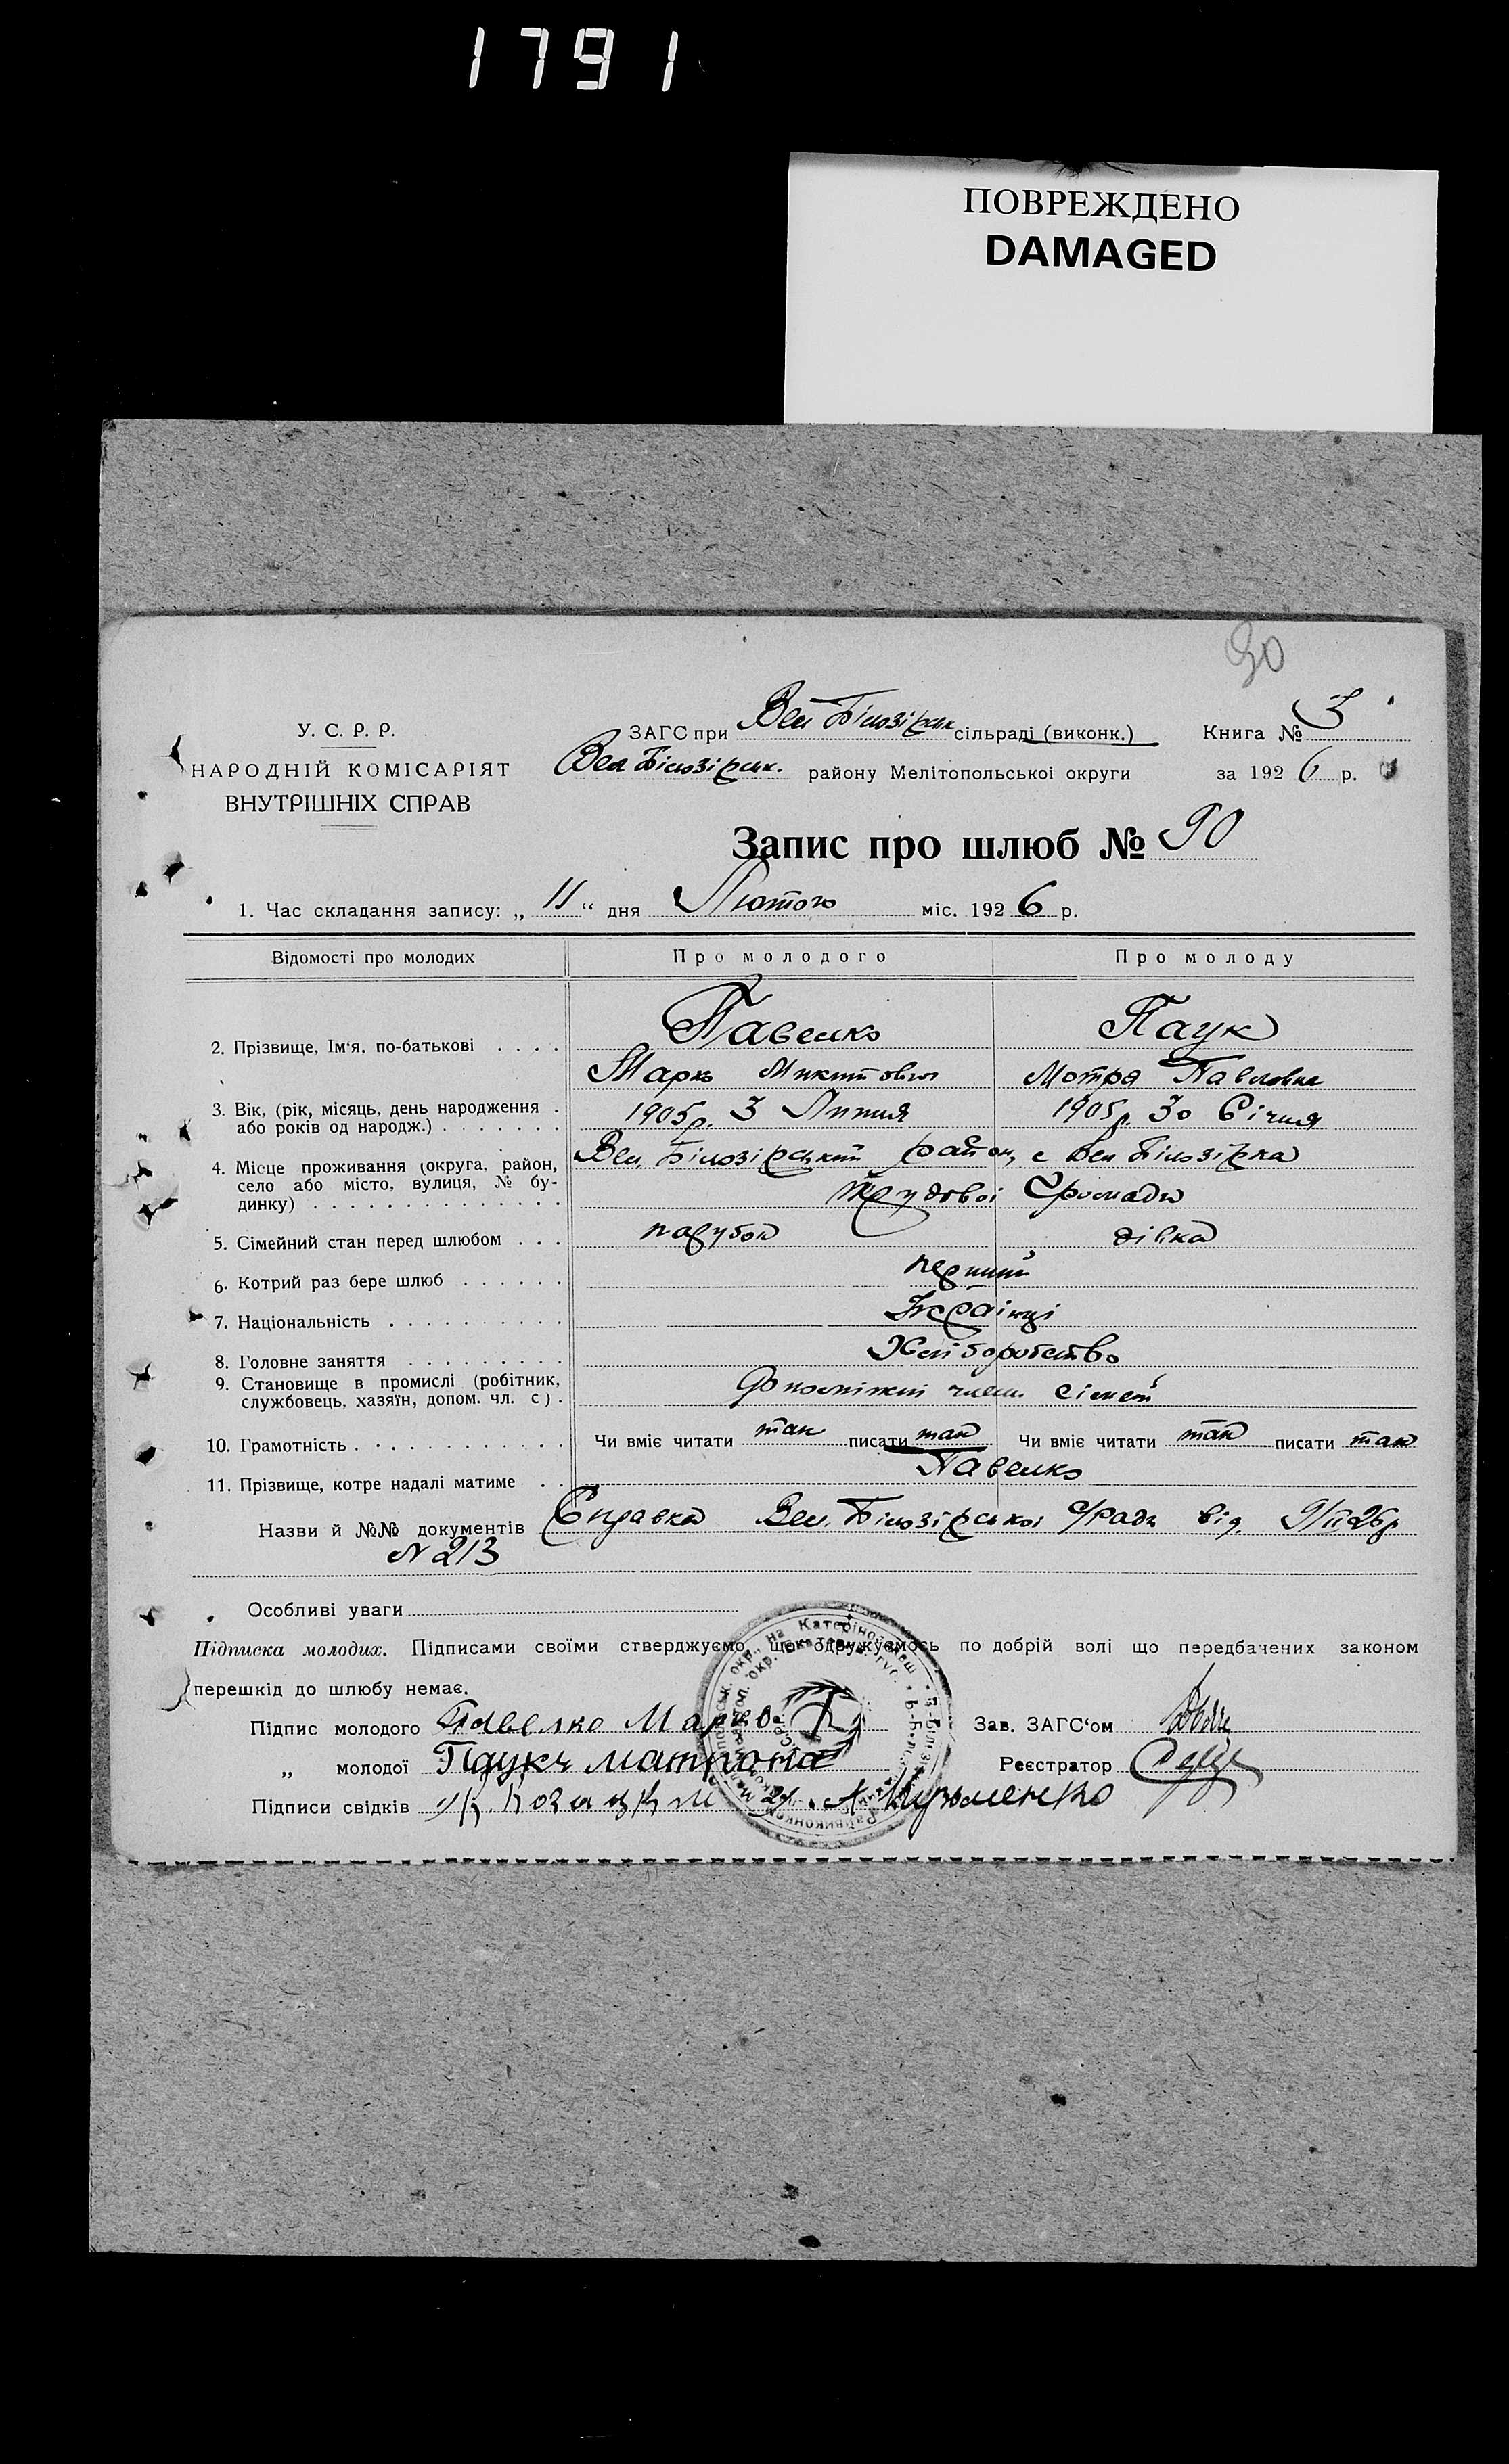 1791
ПОВРЕЖДЕНО
DAMAGED
90
У. С. Р. Р.
НАРОДНІЙ КОМІСАРІЯТ
ВНУТРІШНІХ СПРАВ
ЗАГС при Вел Білозірськ сільраді (виконк.) Книга № 3
Вел Білозірськ. району Мелітопольської округи за 1926 р.
Запис про шлюб № 90
1. Час складання запису: „ 11 “ дня Лютого міс. 1926 р.
Відомості про молодих Про молодого Про молоду
2. Прізвище, Ім‘я, по-батькові . . . . Павелко Паук
Марко Микитович Мотря Павловна
3. Вік, (рік, місяць, день народження . 1905р. 3 Липня 1905р. 30 Січня
або років од народж.) . . . . . . .
4. Місце проживання (округа, район, Вел. Білозірський район, с Вел Білозірка
село або місто, вулиця, № бу-
динку) . . . . . . . . . . . . . . Трудової Громади
5. Сімейний стан перед шлюбом . . . парубок дівка
6. Котрий раз бере шлюб . . . . . . перший
7. Національність . . . . . . . . . . Українці
8. Головне заняття . . . . . . . . . Хліборобство
9. Становище в промислі (робітник,
службовець, хазяїн, допом. чл. с) . Допоміжні члени сімей
10. Грамотність . . . . . . . . . . . . Чи вміє читати так писати так Чи вміє читати так писати так
11. Прізвище, котре надалі матиме . . Павелко
Назви й №№ документів Справка Вел. Білозірської с/ради від. 9/II 26р
N 213
Особливі уваги
Підписка молодих. Підписами своїми стверджуємо, що одружуємось по добрій волі що передбачених законом
перешкід до шлюбу немає.
Підпис молодого Павелко Марко Зав. ЗАГС‘ом
„ молодої Паукъ матрона Реєстратор
Підписи свідків 1/ К Козацкий 2/. А Кузьменко